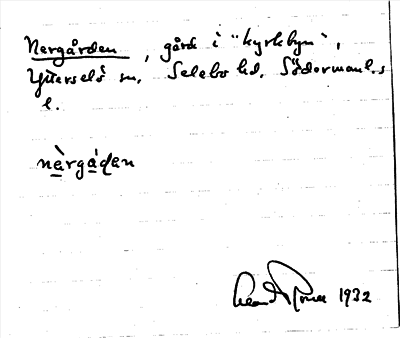 Nergården, gård i "kyrkbyn",
Ytterselö sn, Selebo hd, Södermanl:s
l.
nèrgá̱dɛn
1932